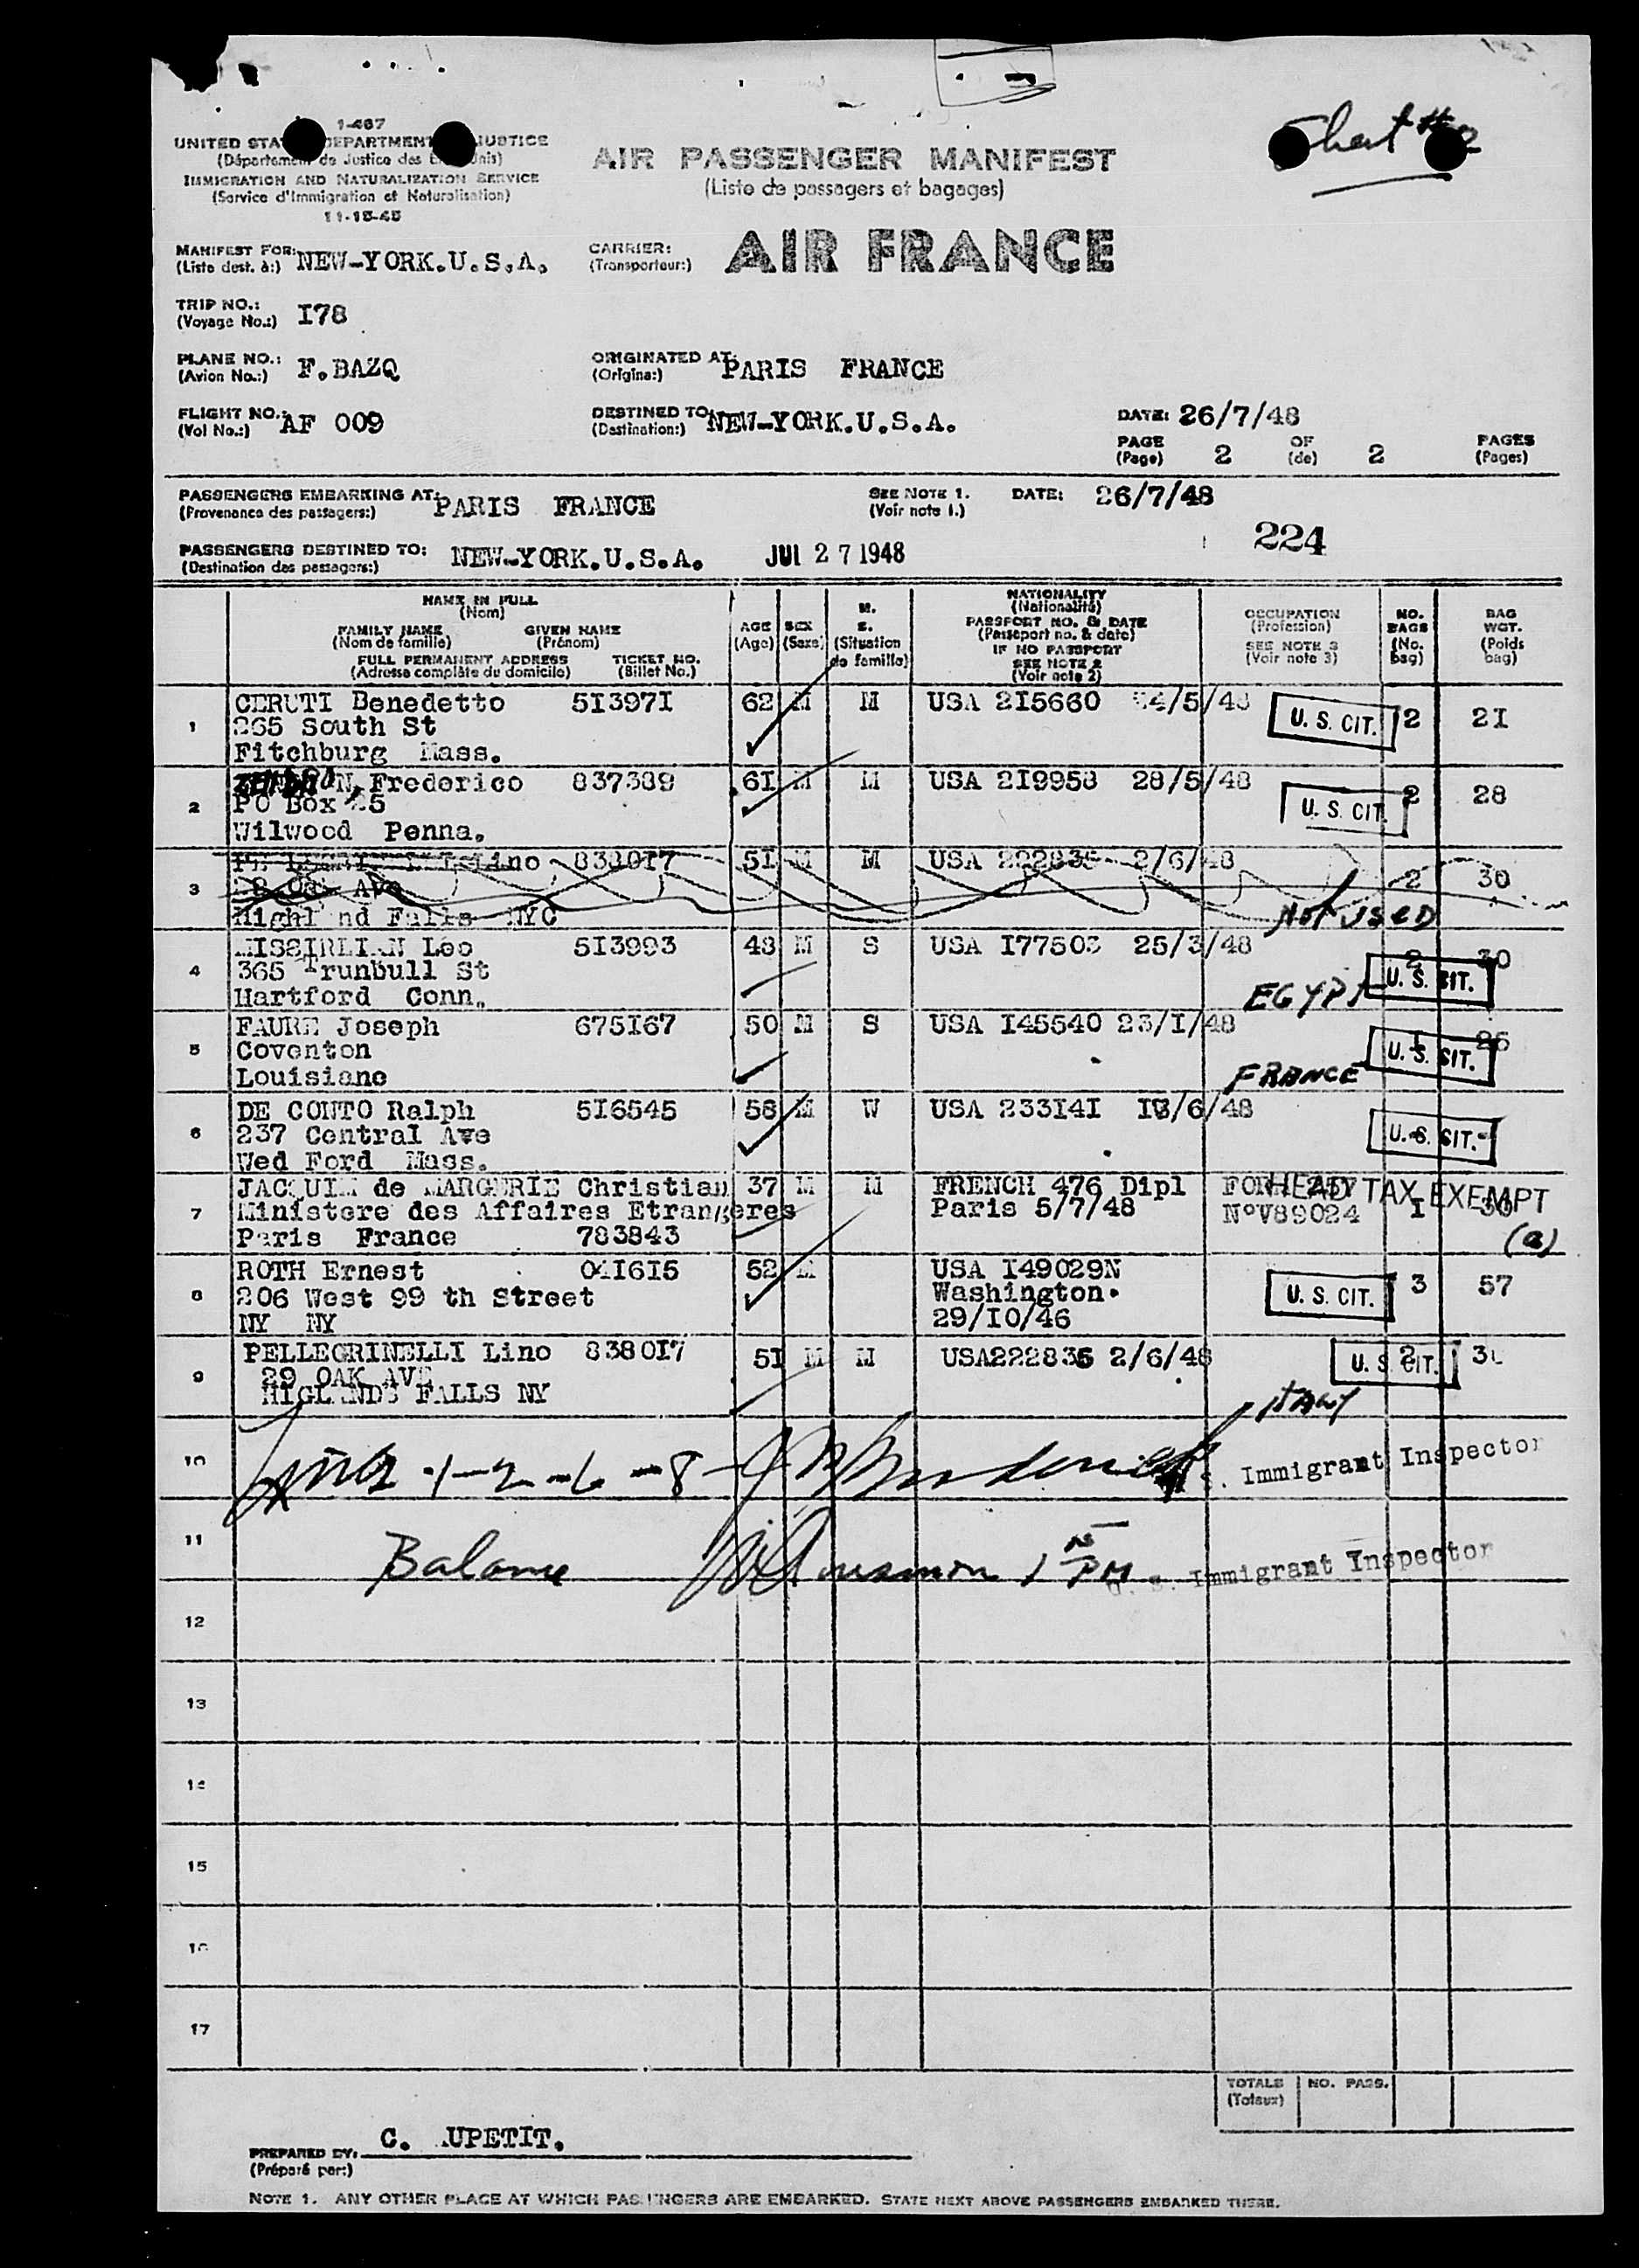 Sheet #2
I-487
UNITED STATES DEPARTMENT JUSTICE
(Département de Justice des Unis)
IMMIGRATION AND NATURALIZATION SERVICE
(Service d'Immigration et Naturalisation)
11-15-45
AIR PASSENGER MANIFEST
(Liste de passagers et bagages)
MANIFEST FOR: NEW-YORK.U.S.A.
(Liste dest. à:)
CARRIER: AIR FRANCE
(Transporteur:)
TRIP NO.: I78
(Voyage No.:)
PLANE NO.: F.BAZQ
(Avion No.:)
ORIGINATED AT: PARIS FRANCE
(Origine:)
FLIGHT NO.: AF 009
(Vol No.:)
DESTINED TO: NEW-YORK.U.S.A.
(Destination:)
DATE: 26/7/48
PAGE 2 OF 2 PAGES
(Page) (de) (Pages)
PASSENGERS EMBARKING AT: PARIS FRANCE SEE NOTE 1. DATE: 26/7/48
(Provenance des passagers:) (Voir note 1.)
224
PASSENGERS DESTINED TO: NEW-YORK.U.S.A. JUL 27 1948
(Destination des passagers:)
NAME IN FULL
(Nom)
FAMILY NAME GIVEN NAME
(Nom de famille) (Prénom)
FULL PERMANENT ADDRESS TICKET NO.
(Adresse complète du domicile) (Billet No.)
AGE
(Age)
SEX
(Sexe)
M.
S.
(Situation
de famille)
NATIONALITY
(Nationalité)
PASSPORT NO. & DATE
(Passeport no. & date)
IF NO PASSPORT
SEE NOTE 2
(Voir note 2)
OCCUPATION
(Profession)
SEE NOTE 3
(Voir note 3)
NO.
BAGS
(No.
bag)
BAG
WGT.
(Poids
bag)
1 CERUTI Benedetto 5I397I 62 M M USA 2I5660 4/5/48 U. S. CIT. 2 2I
265 South St
Fitchburg Mass.
2 Frederico 837389 6I M M USA 2I9958 28/5/48 U. S. CIT. 2 28
PO Box 25
Wilwood Penna.
3 Lino 8380I7 5I M M USA 222836 2/6/48 2 30
Oak Ave
Highland Falls NYC
NOT USED
4 MISSIRLIAN Leo 5I3993 48 M S USA I77503 25/3/48 2 30
365 Trunbull St
Hartford Conn.
EGYPT U. S. CIT.
5 FAURE Joseph 675I67 50 M S USA I45540 23/I/48 I 26
Coventon
Louisiane
FRANCE U. S. CIT.
6 DE CONTO Ralph 5I6545 58 M W USA 233I4I /6/48 U. S. CIT.
237 Central Ave
Wed Ford Mass.
7 JACQUIN de MARGERIE Christian 37 M M FRENCH 476 Dipl HEAD TAX EXEMPT
Ministere des Affaires Etrangeres Paris 5/7/48 N°V89024 I
Paris France 783843 (a)
8 ROTH Ernest 04I6I5 52 M USA I49029N U. S. CIT. 3 57
206 West 99 th Street Washington.
NY NY 29/I0/46
9 PELLEGRINELLI Lino 838017 5I M M USA222836 2/6/48 U. S. CIT. 2
29 OAK AVE
HIGLANDS FALLS NY
ITALY
10 Lines 1-2-6-8 Immigrant Inspector
11 Balance 1 PM U. S. Immigrant Inspector
12
13
14
15
16
17
TOTALS NO. PASS.
(Totaux)
PREPARED BY: C. UPETIT.
(Préparé par:)
NOTE 1. ANY OTHER PLACE AT WHICH PASSENGERS ARE EMBARKED. STATE NEXT ABOVE PASSENGERS EMBARKED THERE.